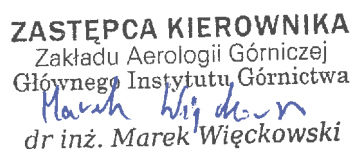 ZASTĘPCA KIEROWNIKA
Zakładu Aerologii Górniczej
Głównego Instytutu Górnictwa
Marek Więckowski
dr inż. Marek Więckowski